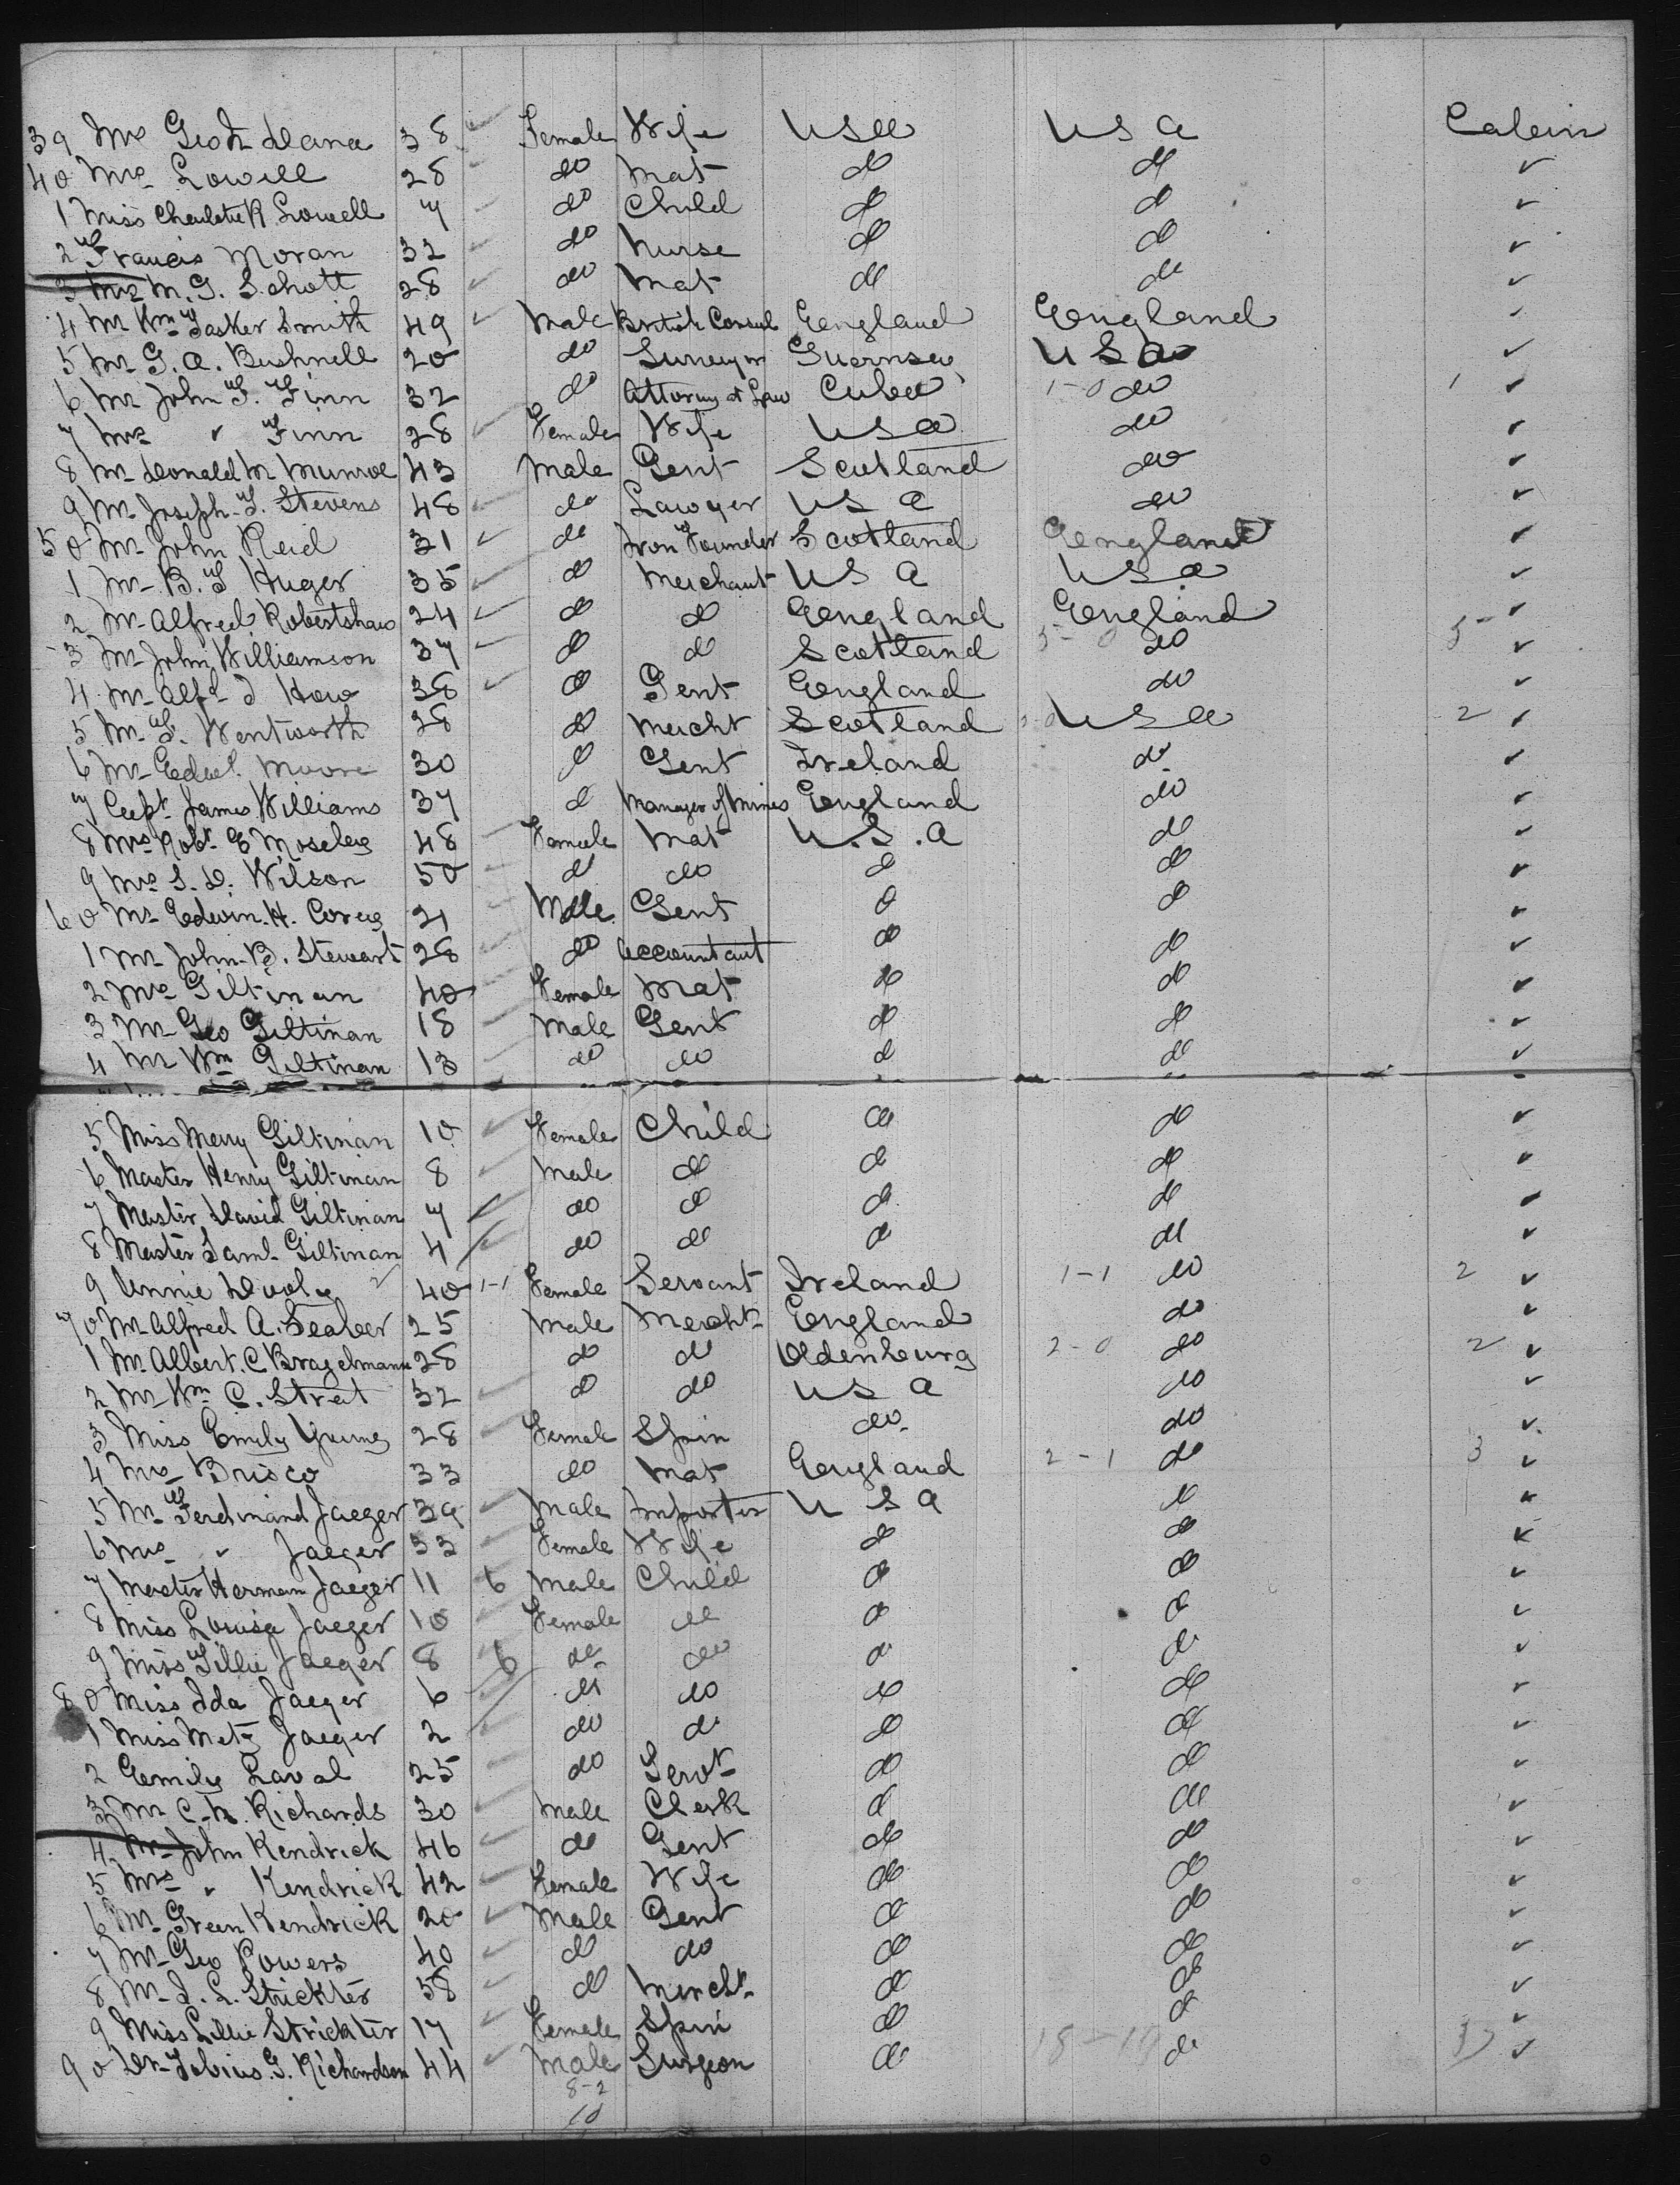 39 Mrs Geo h Dana 38 Female Wife USA USA Cabin
40 Mrs Lowell 28 do Mat do do ✓
1 Miss Charlotte R Lowell 7 do Child do do ✓
2 Francis Moran 32 do Nurse do do ✓
3 Mrs M. G. Schott 28 do Mat do do ✓
4 Mr Wm Tasker Smith 49 Male British Consul England England ✓
5 Mr G. A. Bushnell 20 do Surveyor Guernsey USA ✓
6 Mr John F. Finn 32 do Attorney at Law Cuba 1-0 do 1 ✓
7 Mrs " Finn 28 Female Wife USA do ✓
8 Mr Donald M Munroe 43 Male Gent Scotland do ✓
9 Mr Joseph F. Stevens 48 do Lawyer USA do ✓
50 Mr John Reid 31 do Iron Founder Scotland England ✓
1 Mr B. F Huger 35 do Merchant USA USA ✓
2 Mr Alfred Robertshaw 24 do do England England ✓
3 Mr John Williamson 37 do do Scotland do 5 ✓
4 Mr Alfd J How 38 do Gent England do ✓
5 Mr F. Wentworth 28 do Mercht Scotland USA 2 ✓
6 Mr Edwd. Moore 30 do Gent Ireland do ✓
7 Capt James Williams 37 do Manager of Mines England do ✓
8 Mrs Robt E Moseley 48 Female Mat U.S.A do ✓
9 Mrs S. D. Wilson 50 do do do do ✓
60 Mr Edwin H. Corey 21 Male Gent do do ✓
1 Mr John B. Stewart 28 do Accountant do do ✓
2 Mrs Giltinan 40 Female Mat do do ✓
3 Mr Geo Giltinan 18 Male Gent do do ✓
4 Mr Wm Giltinan 13 do do do do ✓
5 Miss Mary Giltinan 10 Female Child do do ✓
6 Master Henry Giltinan 8 Male do do do ✓
7 Master David Giltinan 7 do do do do ✓
8 Master Saml. Giltinan 4 do do do do ✓
9 Annie Dooly 40 1-1 Female Servant Ireland 1-1 do 2 ✓
70 Mr Alfred A. Seaber 25 Male Mercht England do ✓
1 Mr Albert. C. Bragelmann 28 do do Oldenburg 2-0 do 2 ✓
2 Mr Wm C. Streat 32 do do USA do ✓
3 Miss Emily Young 28 Female Spin do do ✓
4 Mrs Brisco 33 do Mat England 2-1 do 3 ✓
5 Mr Ferdinand Jaeger 39 Male Importer USA do ✓
6 Mrs " Jaeger 33 Female Wife do do ✓
7 Master Herman Jaeger 11 6 Male Child do do ✓
8 Miss Louisa Jaeger 10 Female do do do ✓
9 Miss Tillie Jaeger 8 6 do do do do ✓
80 Miss Ida Jaeger 6 do do do do ✓
1 Miss Meta Jaeger 2 do do do do ✓
2 Emily Laval 25 do Servt do do ✓
3 Mr C. h. Richards 30 Male Clerk do do ✓
4 Mr John Kendrick 46 do Gent do do ✓
5 Mrs " Kendrick 42 Female Wife do do ✓
6 Mr Green Kendrick 20 Male Gent do do ✓
7 Mr Geo Powers 40 do do do do ✓
8 Mr J. L. Strickter 58 do Mercht do do ✓
9 Miss Lillie Strickter 17 Female Spin do do ✓
90 Dr Tobius. G. Richardson 44 Male Surgeon do do ✓
8-2
10